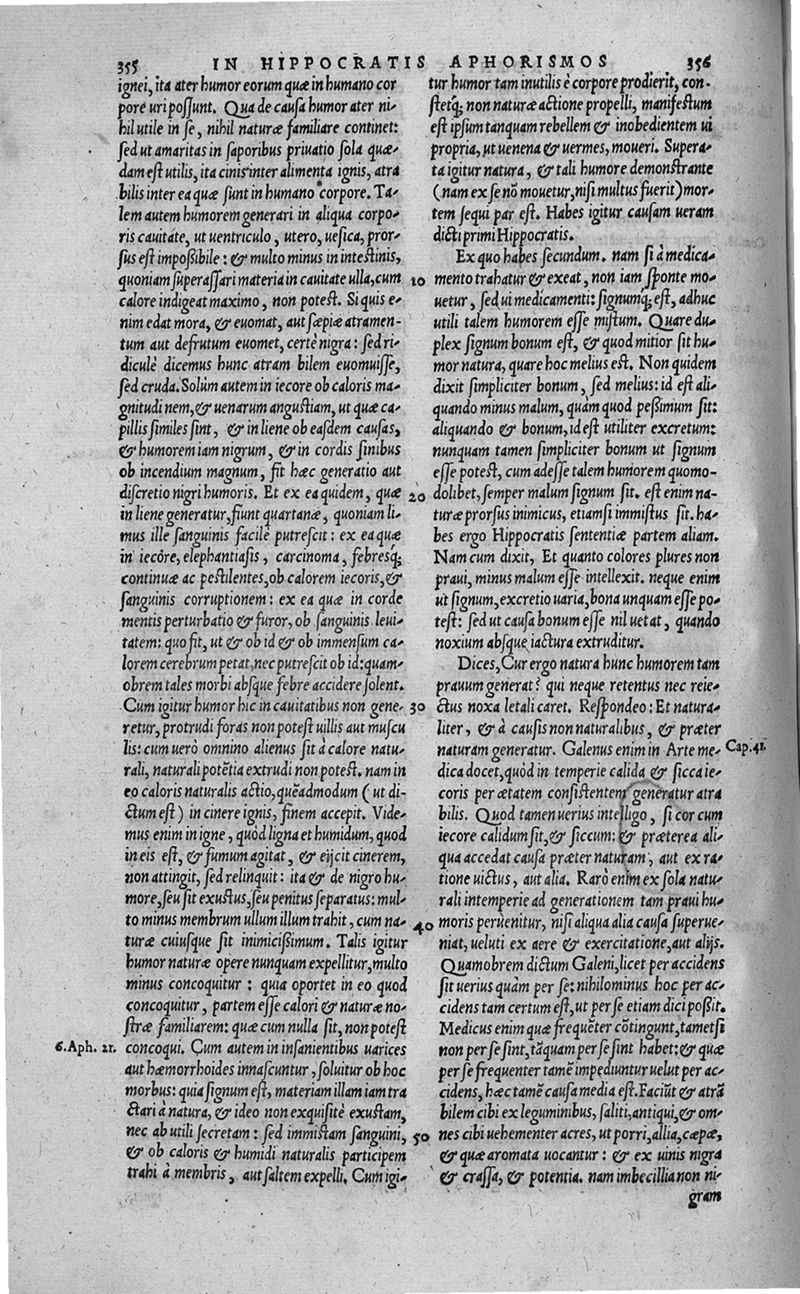 355 IN HIPPOCRATIS APHORISMOS 356
ignei, ita ater humor eorum quæ in humano cor
pore uri possunt. Qua de causa humor ater ni-
hil utile in se, nihil naturæ familiare continet:
sed ut amaritas in saporibus priuatio sola quæ-
dam est utilis, ita cinis inter alimenta ignis, atra
bilis inter ea quæ sunt in humano corpore. Ta-
lem autem humorem generari in aliqua corpo-
ris cauitate, ut uentriculo, utero, uesica, pror-
sus est impoßibile: & multo minus in intestinis,
quoniam superassari materia in cauitate ulla, cum
calore indigeat maximo, non potest. Si quis e-
nim edat mora, & euomat, aut sæpiæ atramen-
tum aut defrutum euomet, certè nigra: sed ri-
diculè dicemus hunc atram bilem euomuisse,
sed cruda. Solùm autem in iecore ob caloris ma-
gnitudinem, & uenarum angustiam, ut quæ ca-
pillis similes sint, & in liene ob easdem causas,
& humorem iam nigrum, & in cordis sinibus
ob incendium magnum, fit hæc generatio aut
discretio nigri humoris. Et ex ea quidem, quæ
in liene generatur, fiunt quartanæ, quoniam li-
mus ille sanguinis facilè putrescit: ex ea quæ
in iecore, elephantiasis, carcinoma, febresq́;
continuæ ac pestilentes, ob calorem iecoris, &
sanguinis corruptionem: ex ea quæ in corde
mentis perturbatio & furor, ob sanguinis leui-
tatem: quo fit, ut & ob id & ob immensum ca-
lorem cerebrum petat, nec putrescit ob id: quam-
obrem tales morbi absque febre accidere solent.
Cum igitur humor hic in cauitatibus non gene-
retur, protrudi foras non potest uillis aut muscu
lis: cum uerò omnino alienus sit à calore natu-
rali, naturali potẽtia extrudi non potest. nam in
eo caloris naturalis actio, quẽadmodum (ut di-
ctum est) in cinere ignis, finem accepit. Vide-
mus enim in igne, quòd ligna et humidum, quod
in eis est, & fumum agitat, & eijcit cinerem,
non attingit, sed relinquit: ita & de nigro hu-
more, seu sit exustus, seu penitus separatus: mul-
to minus membrum ullum illum trahit, cum na-
turæ cuiusque sit inimicißimum. Talis igitur
humor naturæ opere nunquam expellitur, multo
minus concoquitur: quia oportet in eo quod
concoquitur, partem esse calori & naturæ no-
stræ familiarem: quæ cum nulla sit, non potest
6. Aph. 21. concoqui. Cum autem in insanientibus uarices
aut hæmorrhoides innascuntur, soluitur ob hoc
morbus: quia signum est, materiam illam iam tra
ctari à natura, & ideo non exquisitè exustam,
nec ab utili secretam: sed immistam sanguini,
& ob caloris & humidi naturalis participem
trahi à membris, aut saltem expelli. Cum igi-
tur humor tam inutilis è corpore prodierit, con-
stetq́; non naturæ actione propelli, manifestum
est ipsum tanquam rebellem & inobedientem ui
propria, ut uenena & uermes, moueri. Supera-
ta igitur natura, & tali humore demonstrante
(nam ex se nõ mouetur, nisi multus fuerit) mor-
tem sequi par est. Habes igitur causam ueram
dicti primi Hippocratis.
Ex quo habes secundum. nam si à medica-
10 mento trahatur & exeat, non iam sponte mo-
uetur, sed ui medicamenti: signumq́; est, adhuc
utili talem humorem esse mistum. Quare du-
plex signum bonum est, & quod mitior sit hu-
mor natura, quare hoc melius est. Non quidem
dixit simpliciter bonum, sed melius: id est ali-
quando minus malum, quàm quod peßimum sit:
aliquando & bonum, id est utiliter excretum:
nunquam tamen simpliciter bonum ut signum
esse potest, cum adesse talem humorem quomo-
20 dolibet, semper malum signum sit. est enim na-
turæ prorsus inimicus, etiamsi immistus sit. ha-
bes ergo Hippocratis sententiæ partem aliam.
Nam cum dixit, Et quanto colores plures non
praui, minus malum esse intellexit. neque enim
ut signum, excretio uaria, bona unquam esse po-
test: sed ut causa bonum esse nil uetat, quando
noxium absque iactura extruditur.
Dices, Cur ergo natura hunc humorem tam
prauum generat? qui neque retentus nec reie-
30 ctus noxa letali caret. Respondeo: Et natura-
liter, & à causis non naturalibus, & præter
naturam generatur. Galenus enim in Arte me- Cap. 41.
dica docet, quòd in temperie calida & sicca ie-
coris per ætatem consistentem generatur atra
bilis. Quod tamen uerius intelligo, si cor cum
iecore calidum sit, & siccum: & præterea ali-
qua accedat causa præter naturam, aut ex ra-
tione uictus, aut alia. Rarò enim ex sola natu-
rali intemperie ad generationem tam praui hu-
40 moris peruenitur, nisi aliqua alia causa superue-
niat, ueluti ex aere & exercitatione, aut alijs.
Quamobrem dictum Galeni, licet per accidens
sit uerius quàm per se: nihilominus hoc per ac-
cidens tam certum est, ut per se etiam dici poßit.
Medicus enim quæ frequẽter cõtingunt, tametsi
non per se sint, tãquam per se sint habet: & quæ
per se frequenter tamẽ impediuntur uelut per ac-
cidens, hæc tamẽ causa media est. Faciũt & atrã
bilem cibi ex leguminibus, saliti, antiqui, & om-
50 nes cibi uehementer acres, ut porri, allia, cæpæ,
& quæ aromata uocantur: & ex uinis nigra
& crassa, & potentia. nam imbecillia non ni-
gram